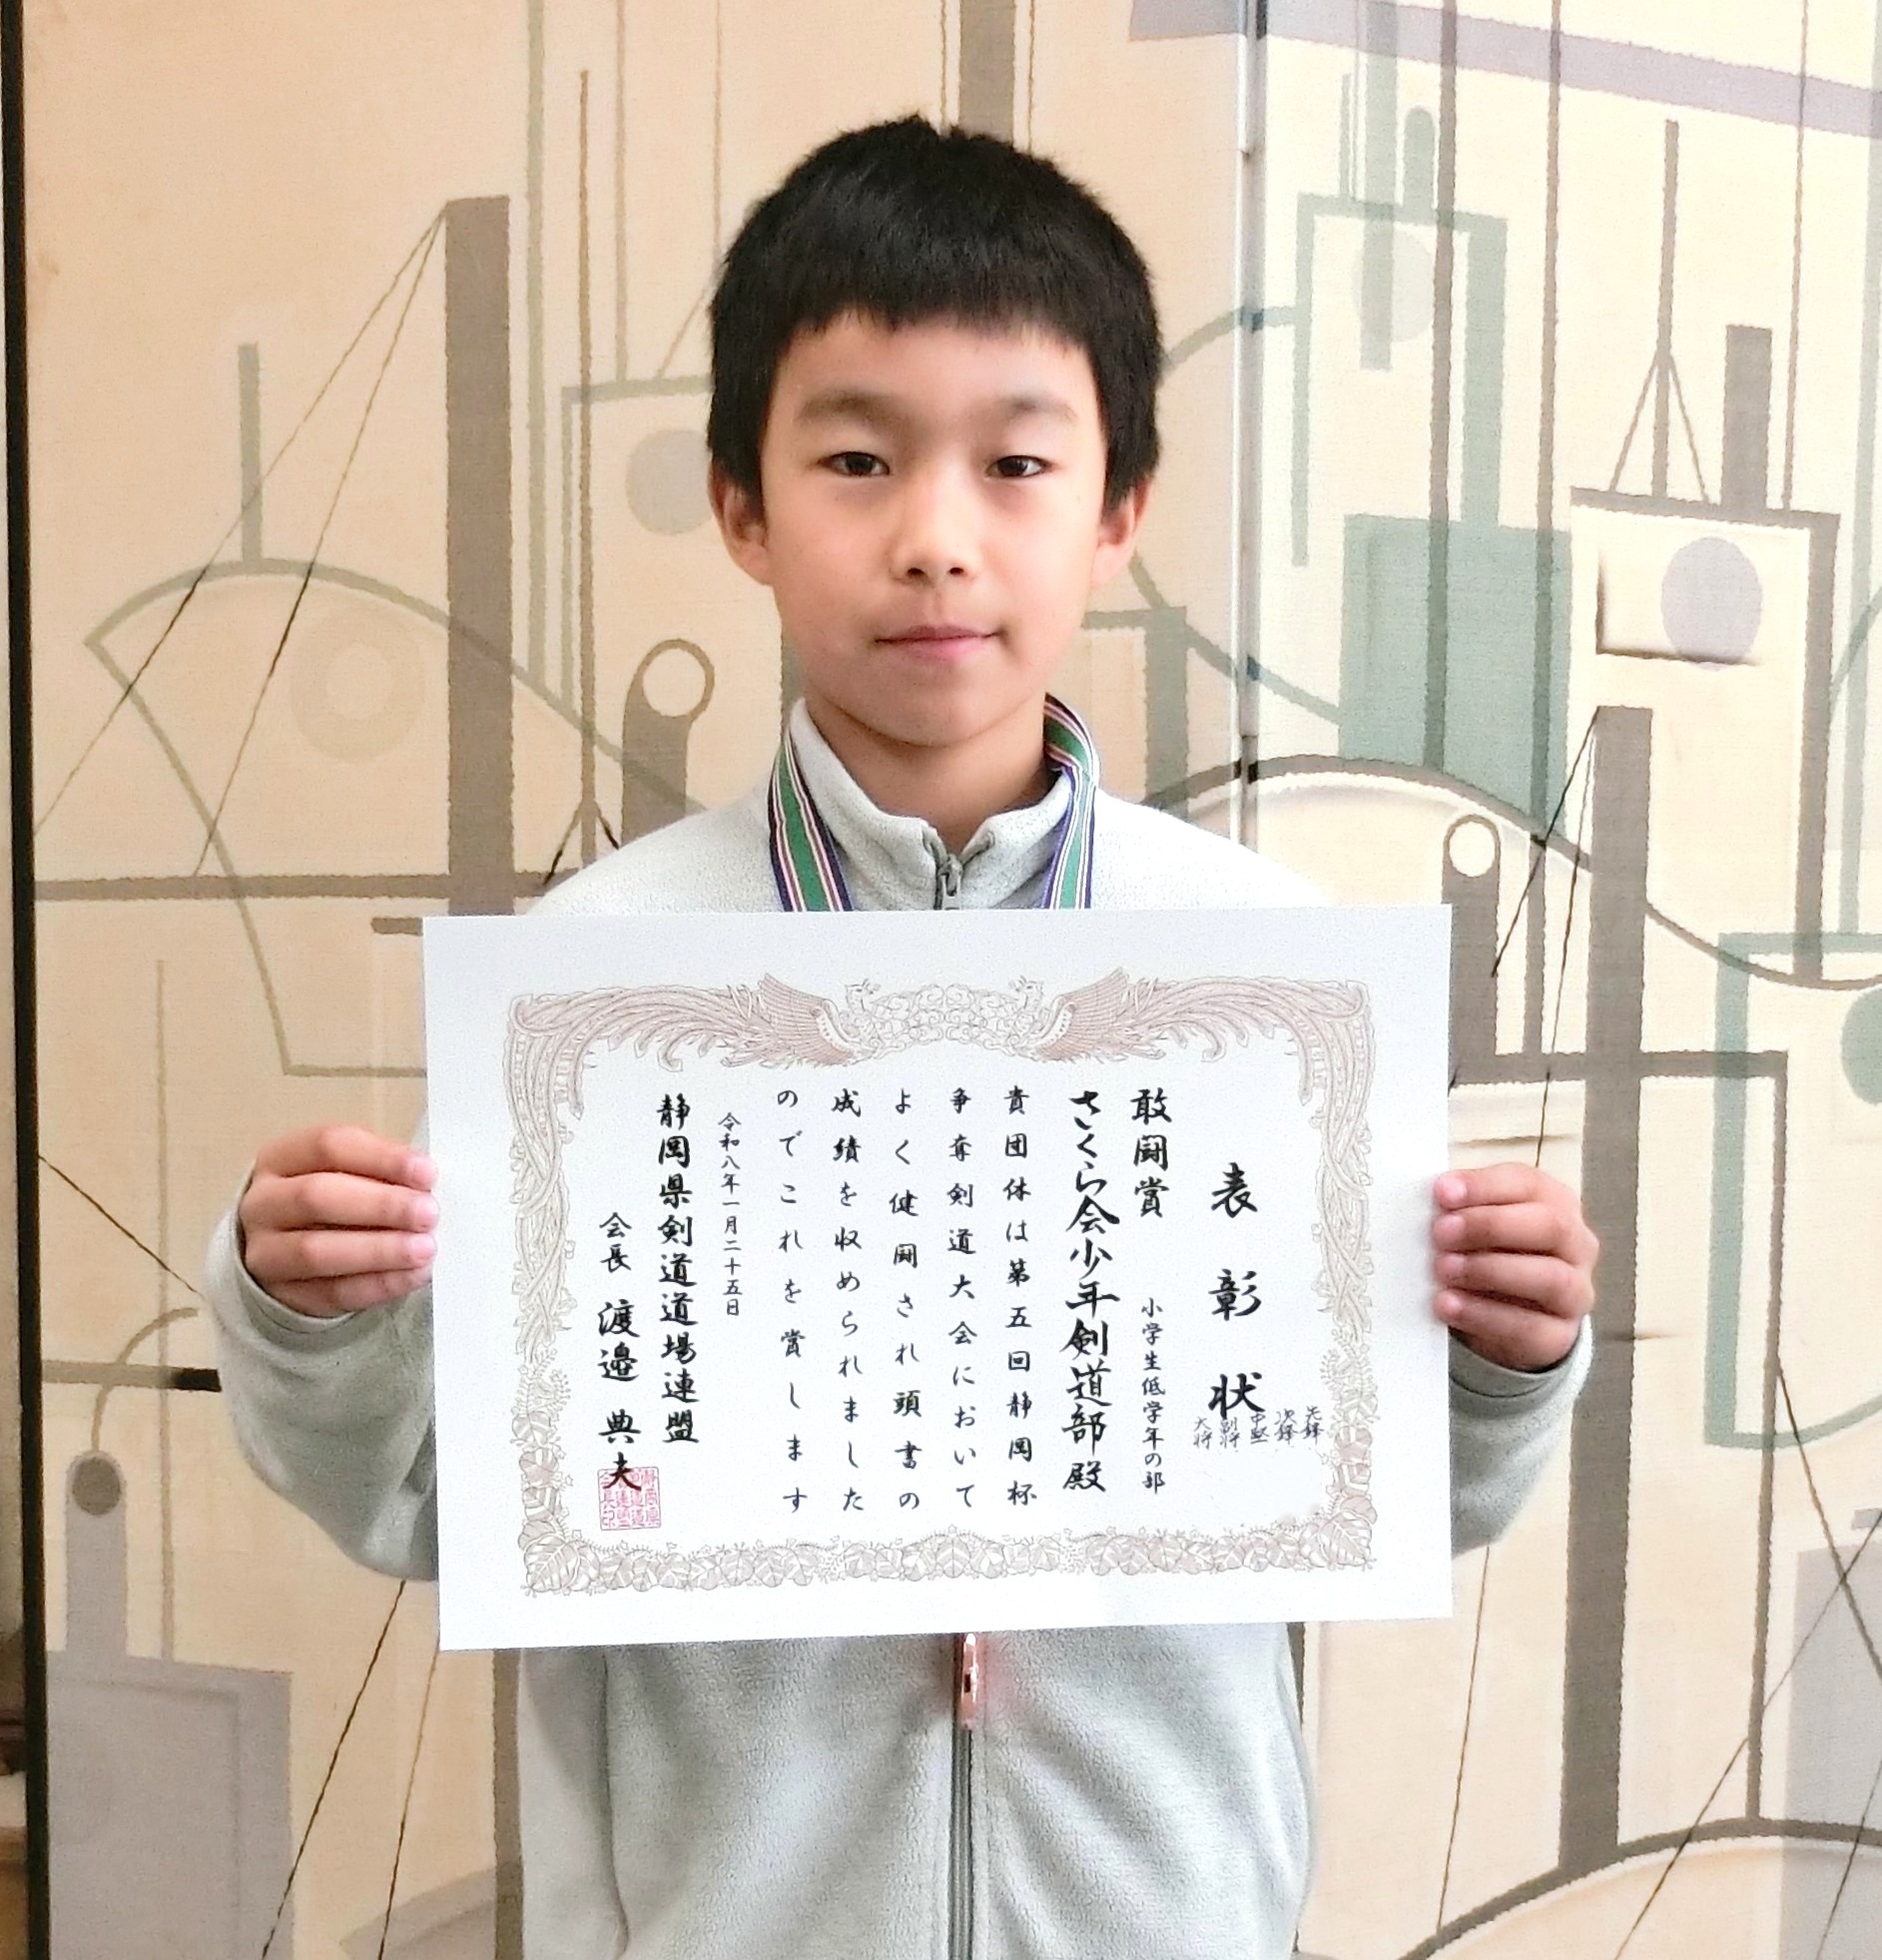 表彰状
先鋒
次鋒
中堅
副将
大将
敢闘賞 小学生低学年の部
さくら会少年剣道部殿
貴団体は第五回静岡杯
争奪剣道大会において
よく健闘され頭書の
成績を収められました
のでこれを賞します
令和八年一月二十五日
静岡県剣道道場連盟
会長 渡邉典夫